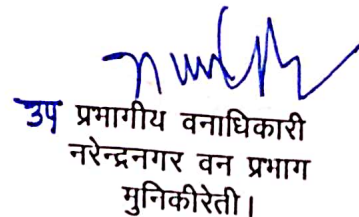 उप प्रभागीय वनाधिकारी
नरेन्द्रनगर वन प्रभाग
मुनिकीरेती।